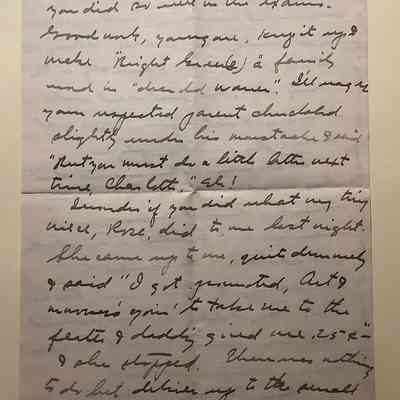 you did so well in the exams.
Good work, young one, keep it up &
make "Knight Gree(e)" a family
word in "
your respected parent chuckled
slightly under his moustache & said
"But you must do a little better next
time, Charlotte," eh!
I wonder if you did what my tiny
niece, Rose, did to me last night.
She came up to me, quite demurely
& said "I got promoted, Art &
mummy's goin' to take me to the
& daddy gived me 25¢"—
& she stopped. There was nothing
to do but deliver up to the small